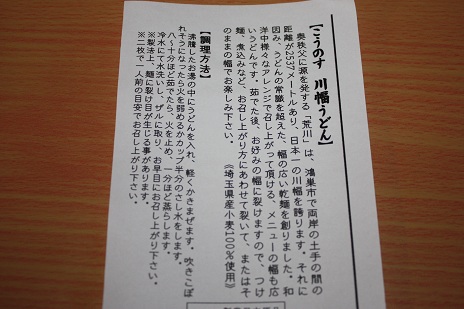 【こうのす 川幅うどん】
奥秩父に源を発する「荒川」は、鴻巣市で両岸の土手の間の
距離が2537メートルあり、日本一の川幅を誇ります。それに
因み、うどんの常識を超えた、幅の広い乾麺を創りました。和
洋中様々なアレンジで召し上がって頂ける、メニューの幅も広
いうどんです。茹でた後、お好みの幅に裂けますので、つけ
麺、煮込みなど、お召し上がり方にあわせて裂いて、またはそ
のままの幅でお楽しみ下さい。
《埼玉県産小麦100%使用》
【調理方法】
沸騰したお湯の中にうどんを入れ、軽くかきまぜます。吹きこぼ
れそうになったら火を弱めるかカップ半分のさし水をします。
八〜十分ほど茹でたら、火を止め、一分ほど蒸らします。
冷水にて水洗いし、ザルに取り、お早目にお召し上がり下さい。
※製法上、麺に裂け目が生じる事があります。
※二枚で一人前の目安でお召し上がり下さい。